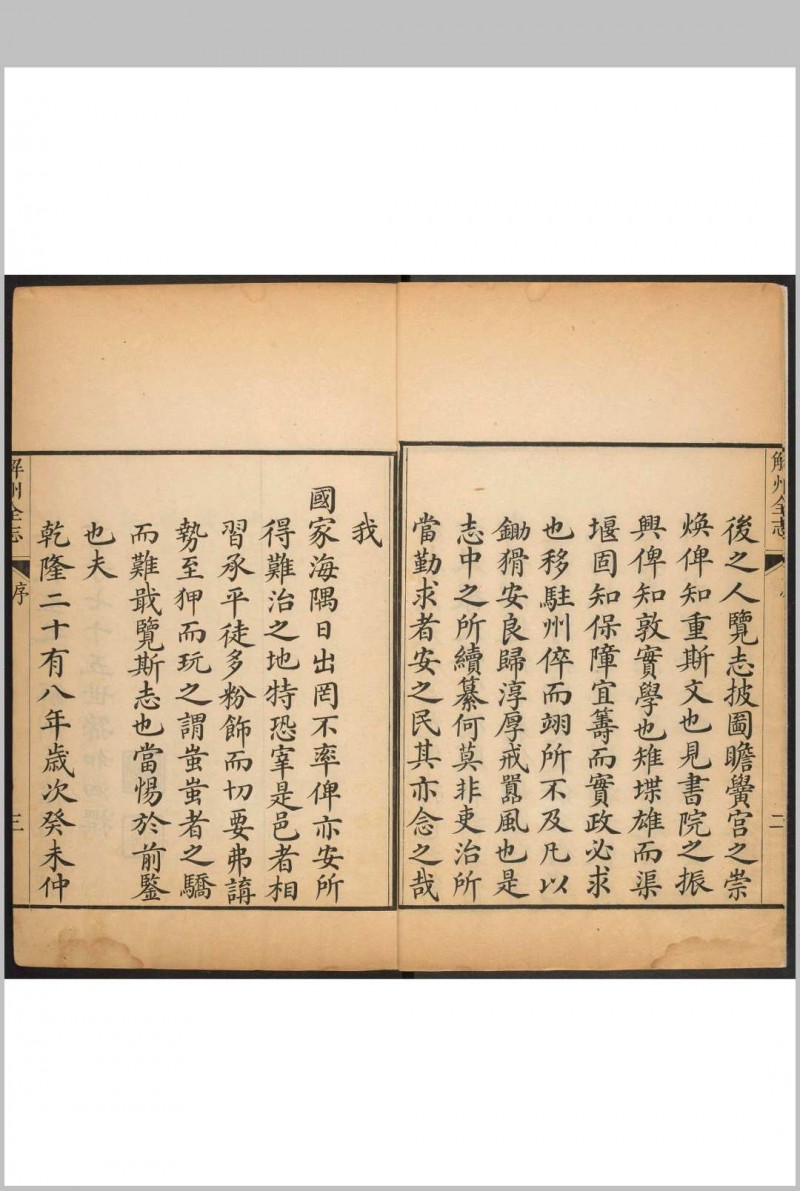 解州全志
二
後之人覽志披圖瞻黌宮之崇
煥俾知重斯文也見書院之振
興俾知敦實學也雉堞雄而渠
堰固知保障宜籌而實政必求
也移駐州倅而翊所不及凡以
鋤猾安良歸淳厚戒囂風也是
志中之所續纂何莫非吏治所
當勤求者安之民其亦念之哉
我
國家海隅日出罔不率俾亦安所
得難治之地特恐宰是邑者相
習承平徒多粉飾而切要弗講
勢至狎而玩之謂蚩蚩者之驕
而難戢覽斯志也當惕於前鑒
也夫
乾隆二十有八年歲次癸未仲
解州全志
序
三